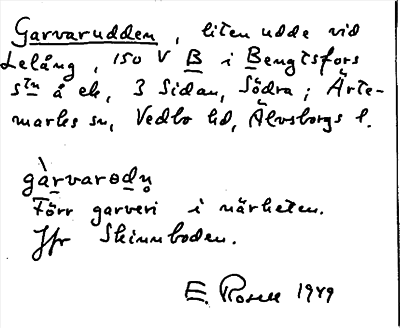 Garvarudden, liten udde vid
Lelång, 150 V B i Bengtsfors
stn å ek, 3 Sidan, Södra; Ärte-
marks sn, Vedbo hd, Älvsborgs l.
gàrvarɵdn̥
Förr garveri i närheten.
Jfr Skinnboden.
E. Rosell 1949